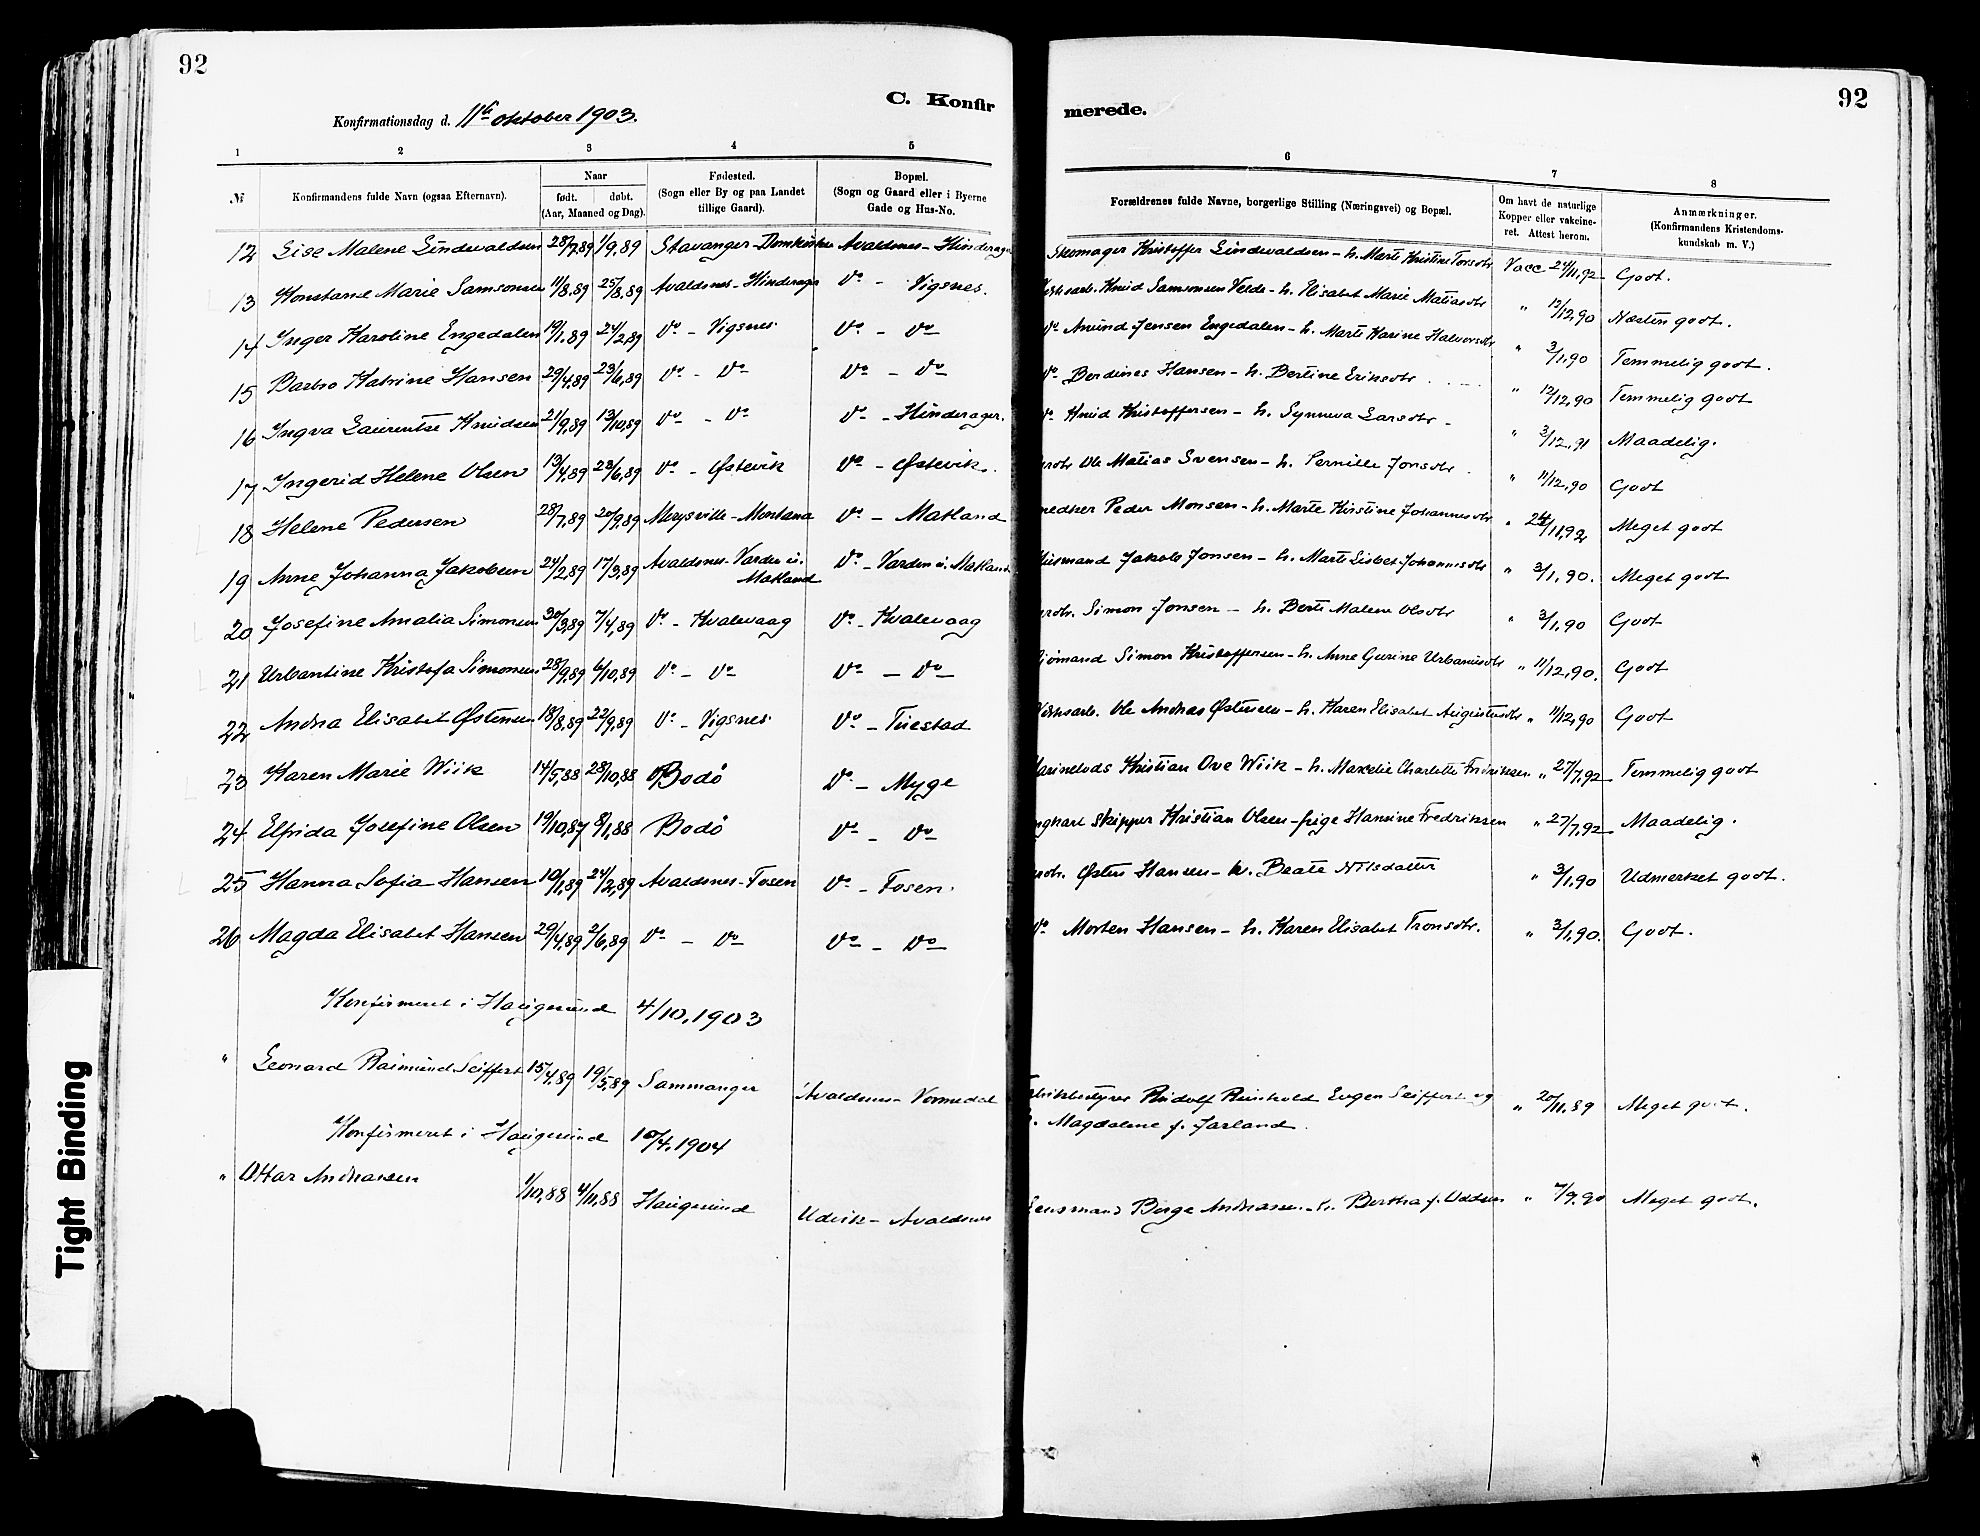 92
92
C. Konfir
merede.
Konfirmationsdag d. 11te oktober 1903.
1 2 3 4 5 6 7 8
№ Konfirmandens fulde Navn (ogsaa Efternavn). Naar født. døbt. (Aar, Maaned og Dag). Fødested. (Sogn eller By og paa Landet tillige Gaard). Bopæl. (Sogn og Gaard eller i Byerne Gade og Hus-No. Forældrenes fulde Navne, borgerlige Stilling (Næringsvei) og Bopæl. Om havt de naturlige Kopper eller vakcineret. Attest herom. Anmærkninger. (Konfirmandens Kristendomskundskab m. V.)
12 Lise Malene Lindevaldsen 28/7,89 1/9,89 Stavanger - Domkirken Avaldsnes - Hinderager Skomager Kristoffer Lindevaldsen - h. Marte Kristine Torsdtr Vacc 24/11,92 Godt.
13 Konstanse Marie Samsonsen 11/8,89 25/8,89 Avaldsnes - Hinderager Do - Vigsnes. Knud Samsonsen Velde - h. Elisabet Marie Matiasdtr " 12/12,90 Næsten godt.
14 Inger Karoline Engedalen 19/1,89 24/2,89 Do - Vigsnes Do - Do Do Amund Jensen Engedalen - h. Marte Karine Halvorsdtr " 3/1,90 Temmelig godt.
15 Barbro Katrine Hansen 29/4,89 23/6,89 Do - Do Do - Do Do Berdines Hansen - h. Bertine Eriksdtr " 12/12,90 Temmelig godt
16 Ingva Laurentse Knudsen 21/9,89 13/10,89 Do - Do Do - Hinderager. Do Knud Kristoffersen - h. Synneva Larsdtr - " 3/12,91 Maadelig.
17 Ingerid Helene Olsen 13/4,89 23/6,89 Do - Østevik Do - Østevik. Ole Matias Svensen - h. Pernille Jonsdtr " 11/12,90 Godt
18 Helene Pedersen 28/7,89 20/9,89 Merysville - Montana Do - Makland Peder Monsen - h. Marte Kirstine Johannesdtr " 24/11,92 Meget godt
19 Anne Johanna Jakobsen 24/2,89 17/3,89 Avaldsnes - Varden u. Makland Do - Varden u. Makland Husmand Jakob Jonsen - h. Marte Lisbet Johannesdtr " 3/1,90. Meget godt
20 Josefine Amalia Simonsen 30/3,89 7/4,89 Do - Kvalevaag Do - Kvalevaag Simon Jonsen - h. Berte Malene Olsdtr " 3/1,90 Godt
21 Urbantine Kristofa Simonsen 28/9,89 6/10,89 Do - Do Do - Do Sjømand Simon Kristoffersen - h. Anne Gurine Urbanusdtr " 11/12,90. Godt
22 Andrea Elisabet Østensen 18/8,89 22/9,89 Do - Vigsnes Do - Tuestad Ole Andreas Østensen - h. Karen Elisabet Augustusdtr " 11/12,90 Godt
23 Karen Marie Wiik 14/5,88 28/10,88 Bodø Do - Myge Marinelods Kristian Ove Wiik - h. Marcelie Charlotte Fredriksen " 27/7,92 Temmelig godt
24 Elfrida Josefine Olsen 19/10,87 8/1,88 Bodø Do - Do Ungkarl Skipper Kristian Olsen - pige Hansine Fredriksen " 27/7,92 Maadelig.
25 Hanna Sofia Hansen 10/1,89 24/2,89 Avaldsnes - Fosen Do - Fosen. Østen Hansen - h. Beate Nilsdatter " 3/1,90 Udmerket godt.
26 Magda Elisabet Hansen 29/4,89 2/6,89 Do - Do Do - Do Do Morten Hansen - h. Karen Elisabet Tronsdtr. " 3/1,90. Godt.
Konfirmeret i Haugesund 4/10,1903
" Leonard Raimund Seiffert 15/4,89 19/5,89 Sammanger Avaldsnes - Vormedal Fabrikbestyrer Rudolf Reinhold Eugen Seiffert og " 20/11,89 Meget godt.
h. Magdalene f. Jarland.
Konfirmeret i Haugesund 10/4,1904
" Ottar Andreassen 1/10,88 4/11,88 Haugesund Udvik - Avaldsnes Lensmand Børge Andreassen - h. Bertha f. Uddsen " 7/9,90 Meget godt.
Tight Binding